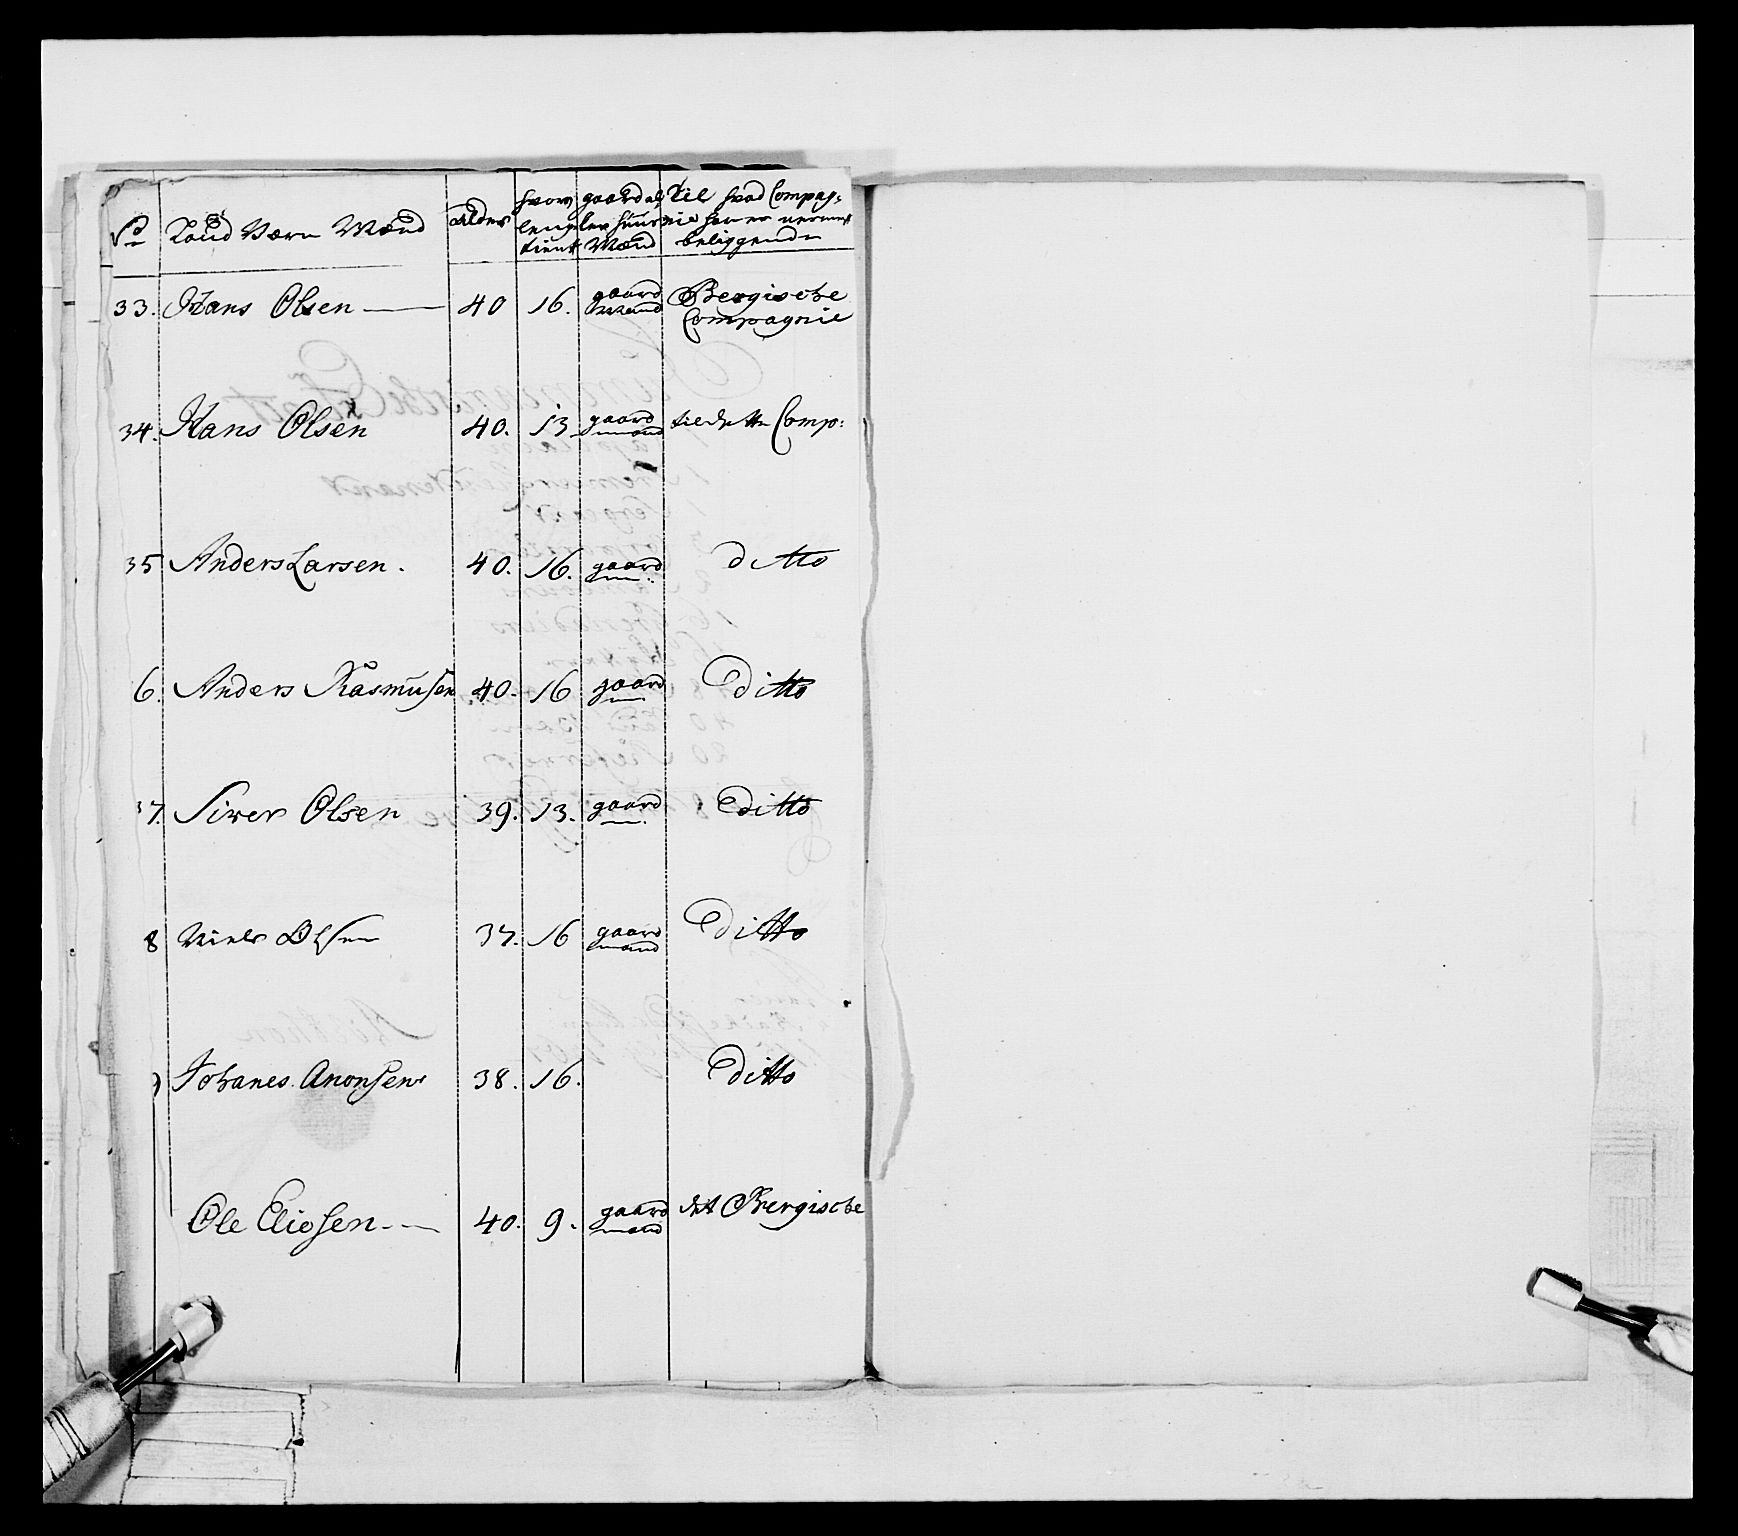 No Land Værn Mænd alder hvor lenge tient gaard el: ler huus Mænd til hvad Compag: nie han er nermest beliggende
33. Hans Olsen 40 16. gaard Mand Bergische Compagnie
34. Hans Olsen 40. 13 gaard mand til dette Comp:
35 Anders Larsen. 40. 16. gaard m: ditto
6. Anders Rasmusen 40. 16 gaard m Ditto
37. Siver Olsen 39. 13. gaard m. Ditto
8 Niels Olsen 37. 16 gaard mand Ditto
Johanes Anonsen 38. 16. Ditto
Ole Eliosen 40. 9. gaard mand det Bergische